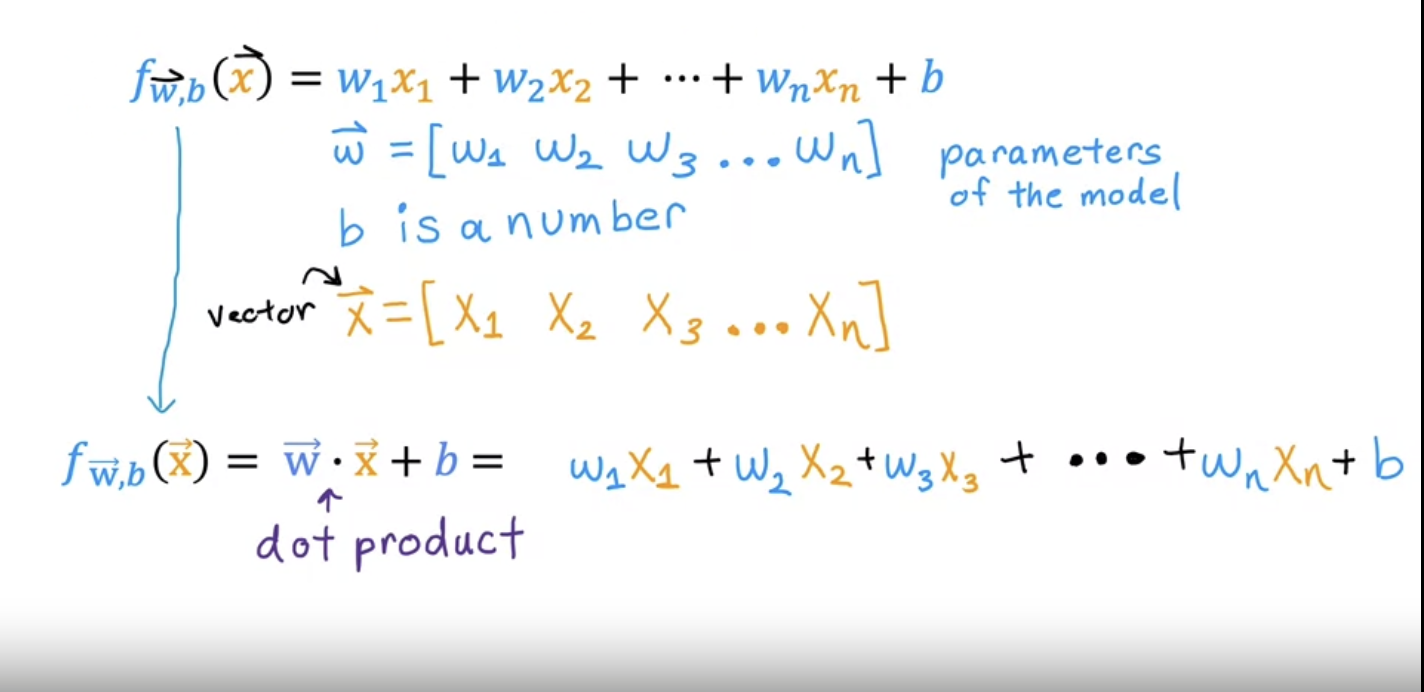 f_{w⃗,b}(x⃗) = w₁x₁ + w₂x₂ + ⋯ + wₙxₙ + b
w⃗ = [w₁ w₂ w₃ ... wₙ] parameters
of the model
b is a number
vector x⃗ = [x₁ x₂ x₃ ... xₙ]
f_{w⃗,b}(x⃗) = w⃗ · x⃗ + b = w₁x₁ + w₂x₂ + w₃x₃ + ... + wₙxₙ + b
dot product